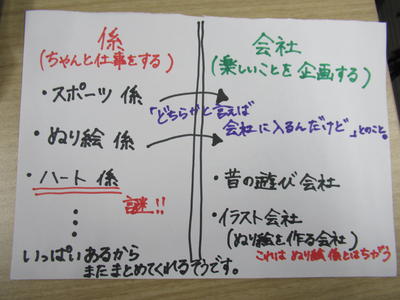 係
(ちゃんと仕事をする)
・スポーツ 係
・ぬり絵 係
・ハート 係
謎!!
・
・
・
いっぱいあるから
まだまとめてくれるそうです。
会社
(楽しいことを企画する)
「どちらかと言えば
会社に入るんだけど」とのこと。
・昔の遊び会社
・イラスト会社
(ぬり絵を作る会社)
これは ぬり絵係とはちがう